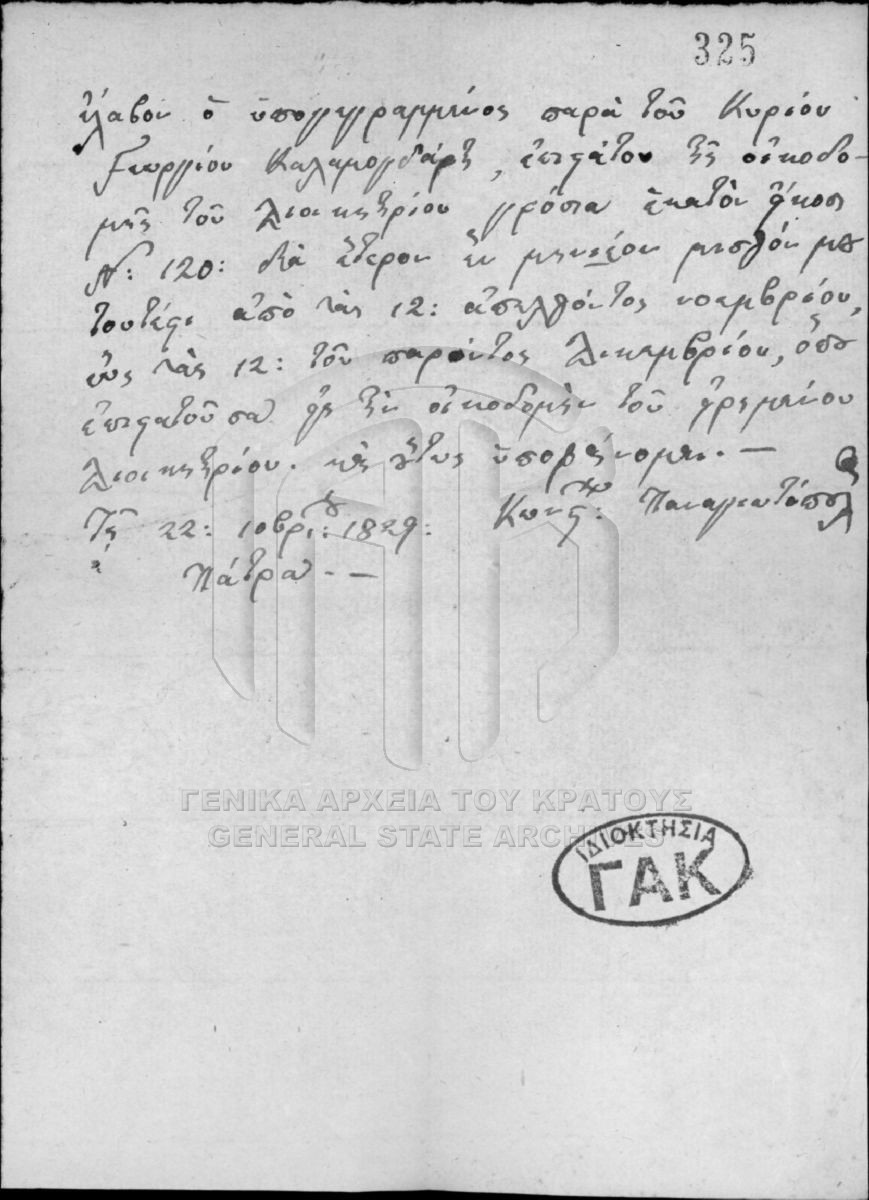 325
ἔλαβον ὁ ὑπογεγραμμένος παρὰ τοῦ Κυρίου
Γεωργίου Καλαμογδάρτη, ἐπιστάτου τῆς οἰκοδο-
μῆς τοῦ Διοικητηρίου γρόσια ἑκατὸν ἤκοσι
Ν: 120: διὰ ἕτερον ἓν μηνιαῖον μισθόν μου
τουτέστι ἀπὸ τὰς 12: ἀπελθόντος νοεμβρίου,
ἕως τὰς 12: τοῦ παρόντος Δικεμβρίου, ὁποῦ
ἐπιστατοῦσα εἰς τὴν οἰκοδομὴν τοῦ εἰρημένου
Διοικητηρίου. καὶ οὕτως ὑποφαίνομαι. —
Τῇ 22: 10βρίου: 1829: Κωνστ: Παναγιωτόπουλος
Πάτρα. —
ΓΕΝΙΚΑ ΑΡΧΕΙΑ ΤΟΥ ΚΡΑΤΟΥΣ
GENERAL STATE ARCHIVES
ΙΔΙΟΚΤΗΣΙΑ
ΓΑΚ